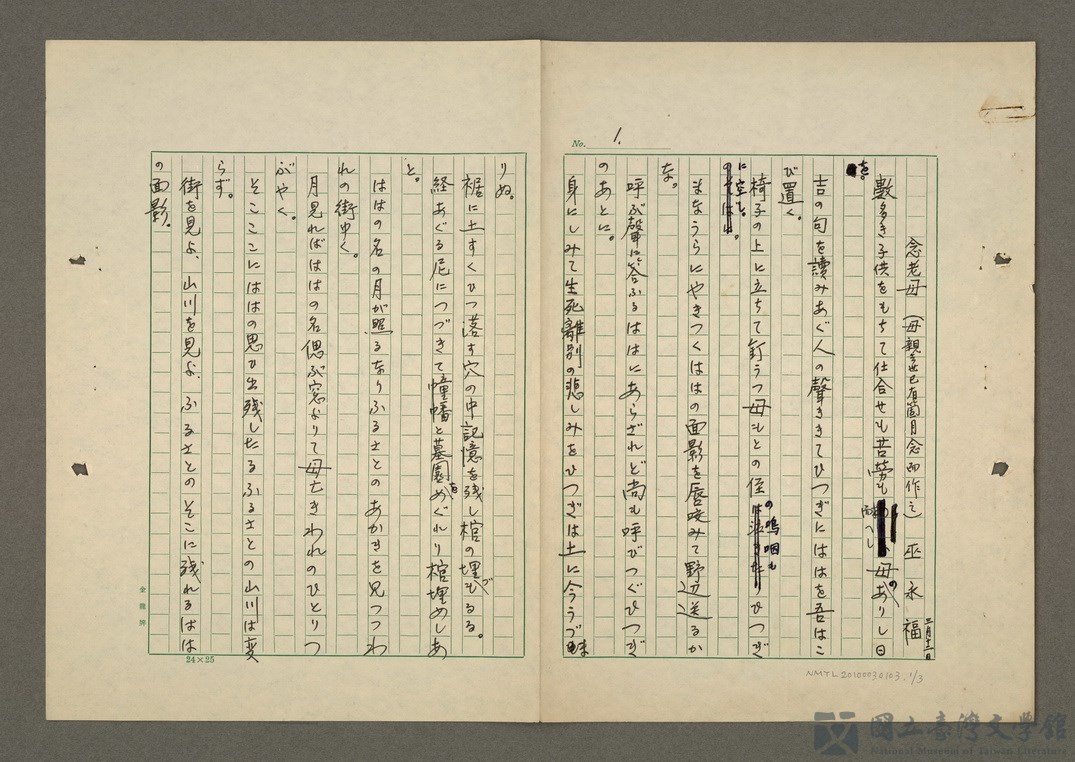 No. 1.
念老母(母親去世已有箇月念而作之) 巫永福 二月十二日
數多き子供をもちて仕合せも苦勞も 母のありし日
を。
吉の句を讀みあぐ人の聲ききてひつぎにははを吾はこ
び置く。
椅子の上に立ちて釘うつ母もとの侄の嗚咽もひつぎ
に空も。
まなうらにやきつくははの面影を唇咬みて野辺送るか
な。
呼ぶ聲に答ふるははにあらざれど尚も呼びつぐひつぎ
のあとに。
身にしみて生死離別の悲しみをひつぎは土に今うづま
りぬ。
裾に土すくひつ落す穴の中記憶を残し棺の埋づもるる。
経あぐる尼につづきて幢幡と墓園をめぐれり棺埋めしあ
と。
ははの名の月が照るなりふるさとのあかきを見つつわ
れの街ゆく。
月見ればははの名偲ぶ窓よりて母亡きわれのひとりつ
ぶやく。
そこここにははの思ひ出残したるふるさとの山川は変
らず。
街を見よ、山川を見よ、ふるさとのそこに残れるはは
の面影。
24×25
NMTL20100030103, 1/3
國立臺灣文學館
National Museum of Taiwan Literature